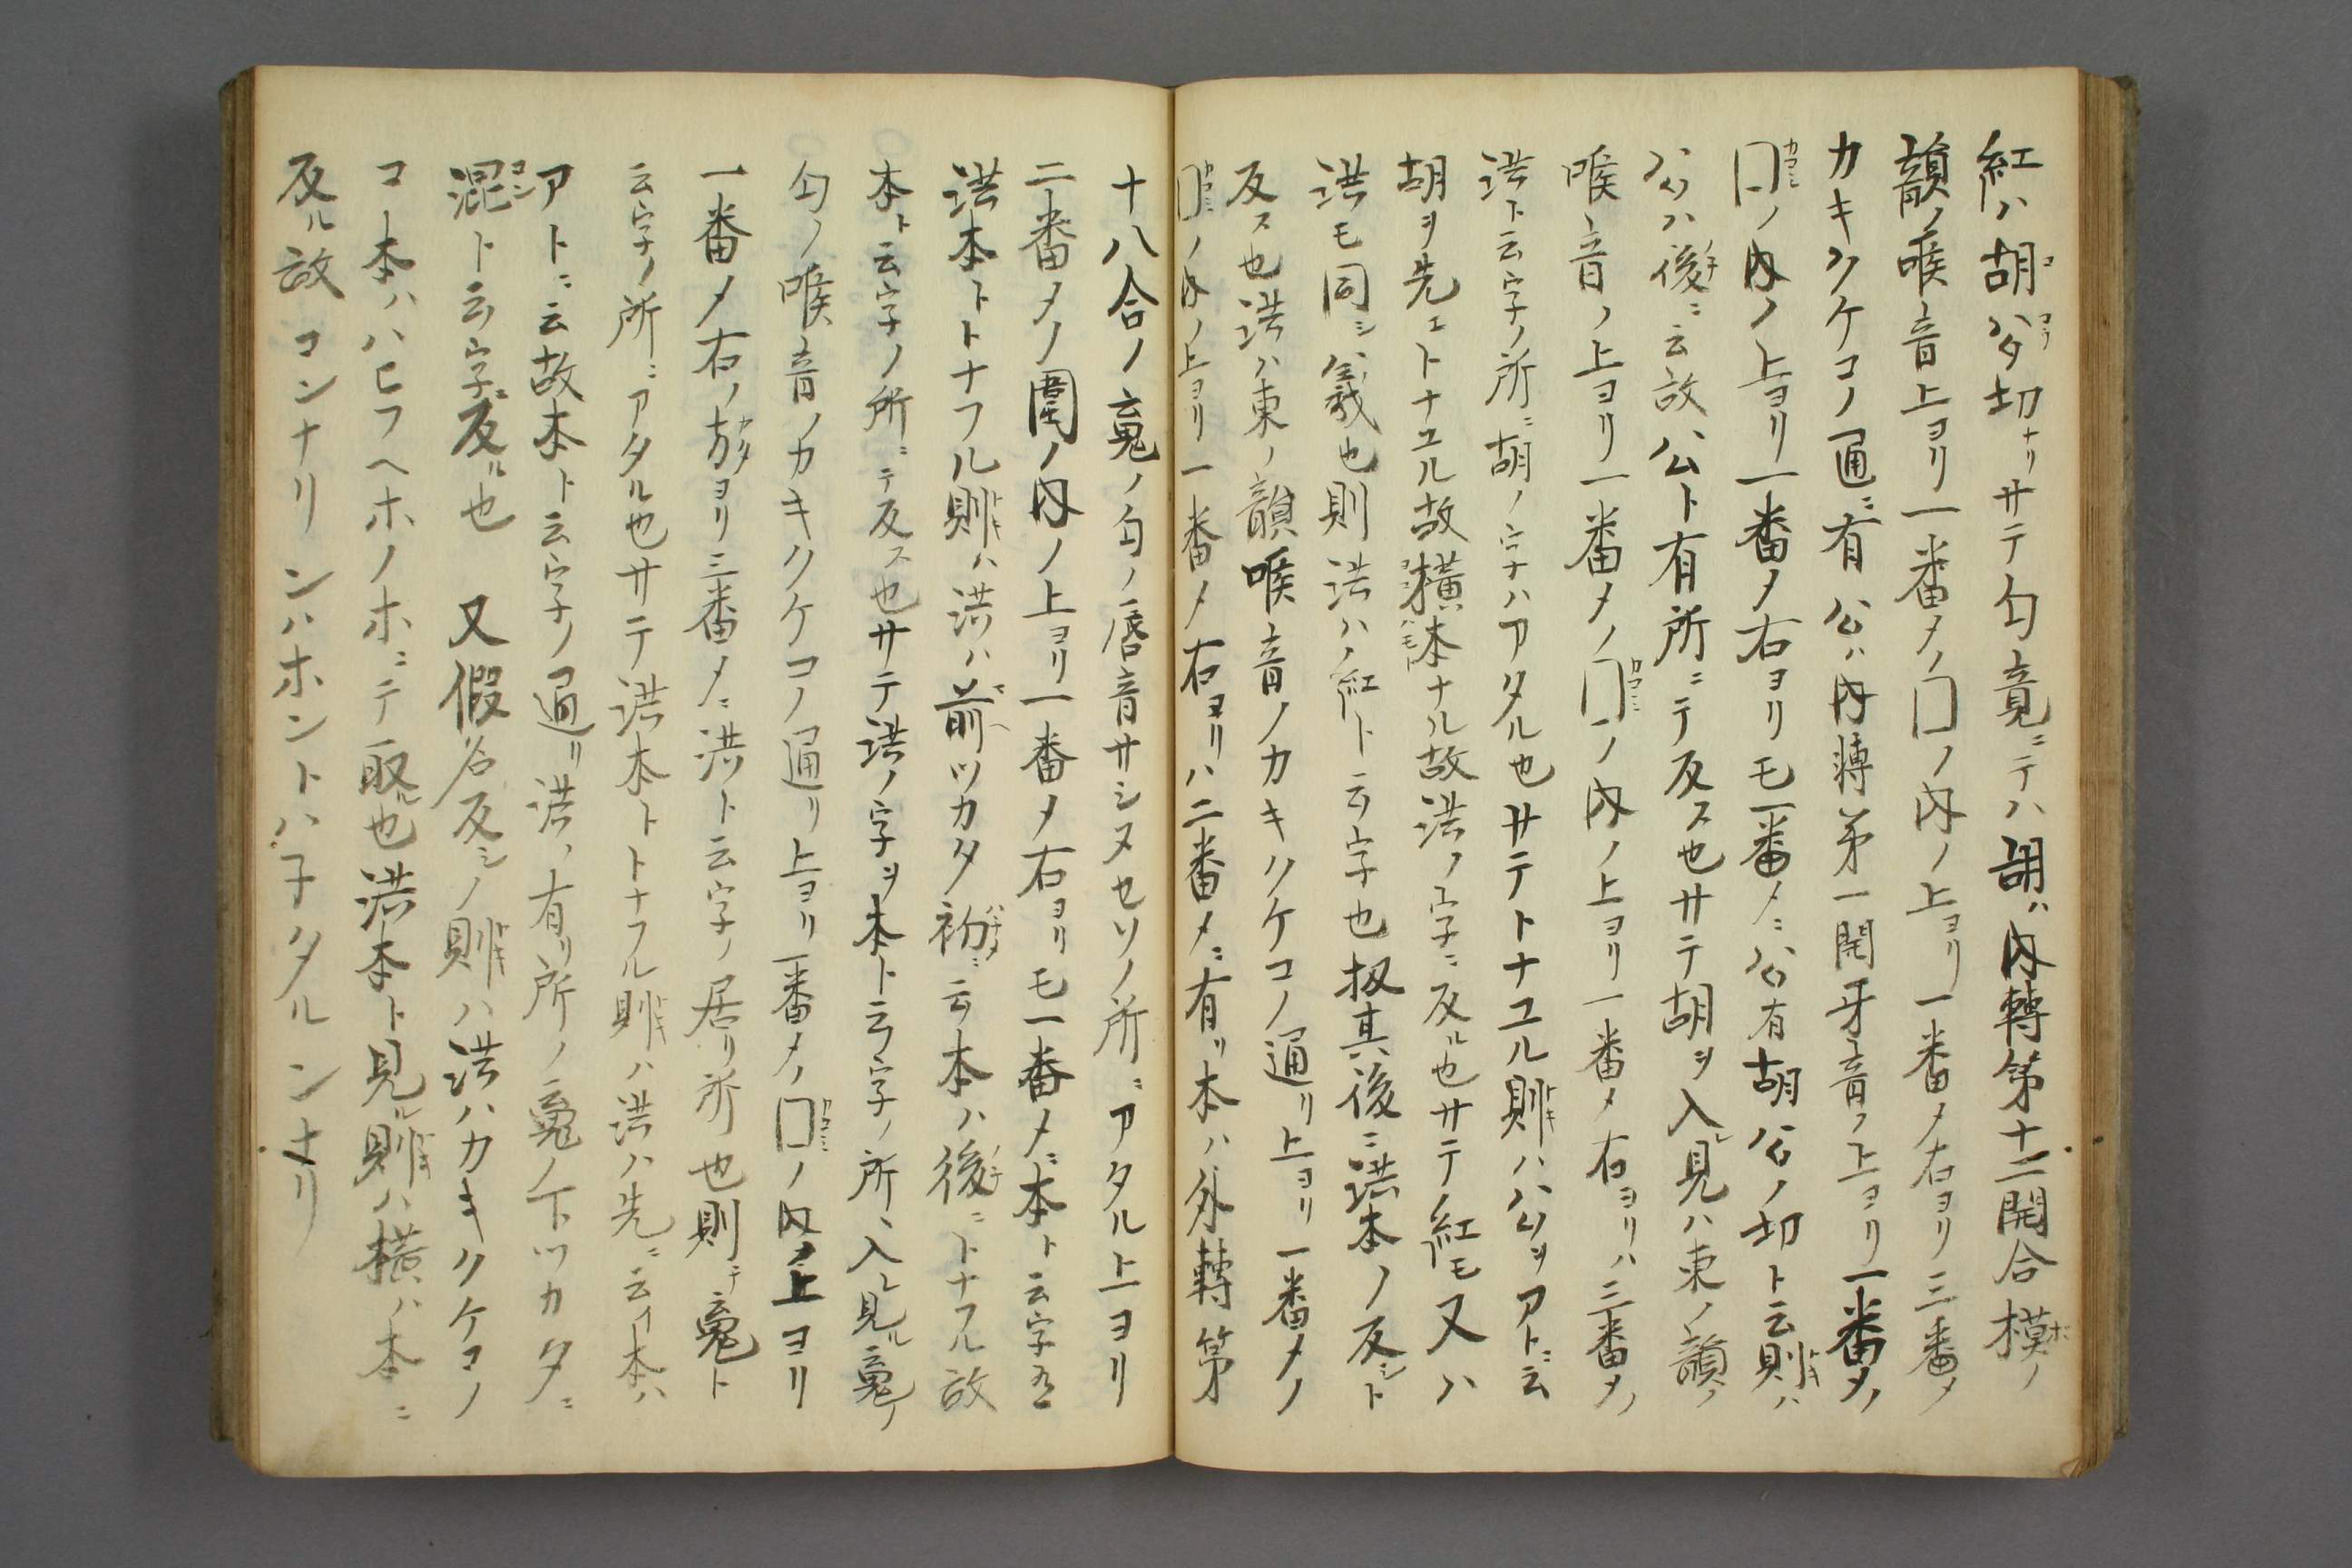 紅ハ胡公切ナリサテ匂竟ニテハ胡ハ内轉第十二開合模ノ
韻ノ喉音上ヨリ一番メノ囗ノ内ノ上ヨリ一番メ右ヨリ三番メ
カキクケコノ通ニ有公ハ内轉第一開牙音ノ上ヨリ一番メノ
囗ノ内ノ上ヨリ一番メ右ヨリモ一番メニ公有胡公ノ切ト云則ハ
公ハ後ニ云故公ト有所ニテ反ス也サテ胡ヲ入見ハ東ノ韻ノ
喉音ノ上ヨリ一番メノ囗ノ内ノ上ヨリ一番メ右ヨリハ三番メノ
洪ト云字ノ所ニ胡ノ字ハアタル也サテトナユル則ハ公ヲアトニ云
胡ヲ先ニトナユル故横本ナル故洪ノ字ニ反ル也サテ紅モ又ハ
洪モ同シ義也則洪ハ紅ト云字也扨其後ニ洪本ノ反シト
反ス也洪ハ東ノ韻喉音ノカキクケコノ通リ上ヨリ一番メノ
囗ノ内ノ上ヨリ一番メ右ヨリハ二番メニ有リ本ハ外轉第
十八合ノ䰟ノ匂ノ唇音サシスセソノ所ニアタル上ヨリ
二番メノ圍ノ内ノ上ヨリ一番メ右ヨリモ一番メニ本ト云字有
洪本トトナフル則ハ洪ハ前ツカタ初ニ云本ハ後ニトナフル故
本ト云字ノ所ニテ反ス也サテ洪ノ字ヲ本ト云字ノ所ヘ入レ見ル䰟ノ
匂ノ喉音ノカキクケコノ通リ上ヨリ一番メノ囗ノ内ノ上ヨリ
一番メ右ノ方ヨリ三番メニ洪ト云字ノ居リ所也則チ䰟ト
云字ノ所ニアタル也サテ洪本トトナフル則ハ洪ハ先ニ云イ本ハ
アトニ云故本ト云字ノ通リ洪ノ有リ所ノ䰟ノ下ツカタニ
混ト云字ニ反ル也　又假名反シノ則ハ洪ハカキクケコノ
コ本ハハヒフヘホノホニテ取ル也洪本ト見ル則ハ横ハ本ニ
反ル故コンナリンハホントハ子タルンナリ